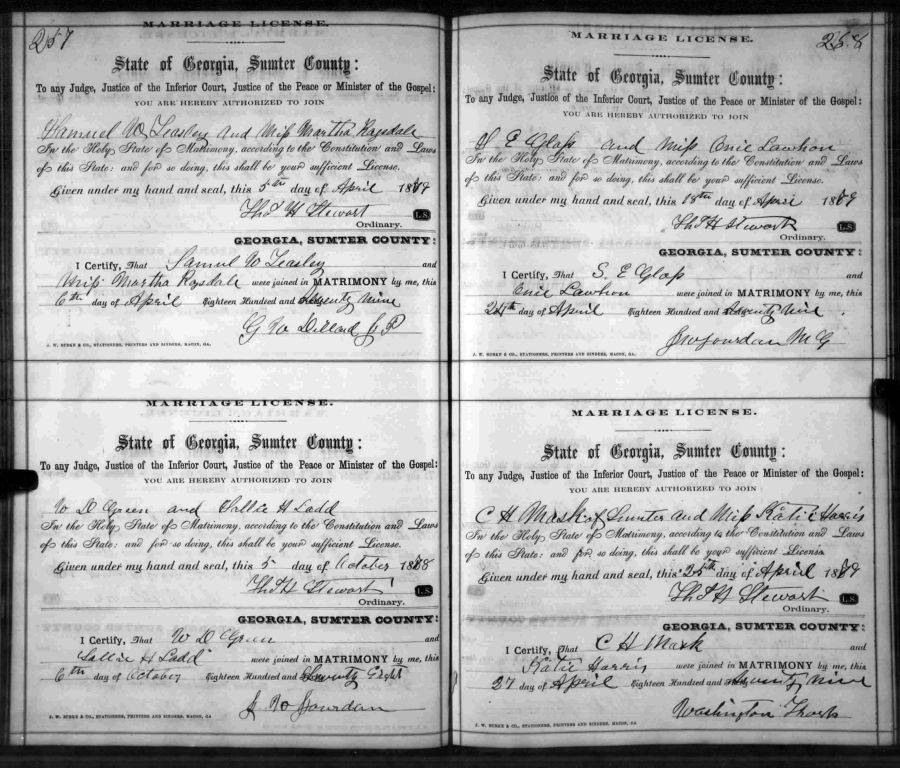 257
MARRIAGE LICENSE.
State of Georgia, Sumter County:
To any Judge, Justice of the Inferior Court, Justice of the Peace or Minister of the Gospel:
YOU ARE HEREBY AUTHORIZED TO JOIN
Samuel W Teasley and Miss Martha Ragsdale
In the Holy State of Matrimony, according to the Constitution and Laws
of this State: and for so doing, this shall be your sufficient License.
Given under my hand and seal, this 5th day of April 1879
Thos H Stewart L.S.
Ordinary.
GEORGIA, SUMTER COUNTY:
I Certify, That Samuel W Teasley and
Miss Martha Ragsdale were joined in MATRIMONY by me, this
6th day of April Eighteen Hundred and Seventy Nine
G W Dillard J P
J. W. BURKE & CO., STATIONERS, PRINTERS AND BINDERS, MACON, GA.
MARRIAGE LICENSE.
State of Georgia, Sumter County:
To any Judge, Justice of the Inferior Court, Justice of the Peace or Minister of the Gospel:
YOU ARE HEREBY AUTHORIZED TO JOIN
W D Green and Sallie H Ladd
In the Holy State of Matrimony, according to the Constitution and Laws
of this State: and for so doing, this shall be your sufficient License.
Given under my hand and seal, this 5 day of October 1878
Thos H Stewart L.S.
Ordinary.
GEORGIA, SUMTER COUNTY:
I Certify, That W D Green and
Sallie H Ladd were joined in MATRIMONY by me, this
6th day of October Eighteen Hundred and Seventy Eight
J W Jourdan
J. W. BURKE & CO., STATIONERS, PRINTERS AND BINDERS, MACON, GA
258
MARRIAGE LICENSE.
State of Georgia, Sumter County:
To any Judge, Justice of the Inferior Court, Justice of the Peace or Minister of the Gospel:
YOU ARE HEREBY AUTHORIZED TO JOIN
S E Glass and Miss Onie Lawhon
In the Holy State of Matrimony, according to the Constitution and Laws
of this State: and for so doing, this shall be your sufficient License.
Given under my hand and seal, this 18th day of April 1879
Thos H Stewart L.S.
Ordinary.
GEORGIA, SUMTER COUNTY:
I Certify, That S. E Glass and
Onie Lawhon were joined in MATRIMONY by me, this
24th day of April Eighteen Hundred and Seventy Nine.
J W Jourdan M G
J. W. BURKE & CO., STATIONERS, PRINTERS AND BINDERS, MACON, GA.
MARRIAGE LICENSE.
State of Georgia, Sumter County:
To any Judge, Justice of the Inferior Court, Justice of the Peace or Minister of the Gospel:
YOU ARE HEREBY AUTHORIZED TO JOIN
C H Mask of Sumter and Miss Katie Harris
In the Holy State of Matrimony, according to the Constitution and Laws
of this State: and for so doing, this shall be your sufficient License
Given under my hand and seal, this 25th day of April 1879
Thos H Stewart L.S.
Ordinary.
GEORGIA, SUMTER COUNTY:
I Certify, That C H Mask and
Katie Harris were joined in MATRIMONY by me, this
27 day of April Eighteen Hundred and Seventy Nine
Washington
J. W. BURKE & CO., STATIONERS, PRINTERS AND BINDERS, MACON, GA.